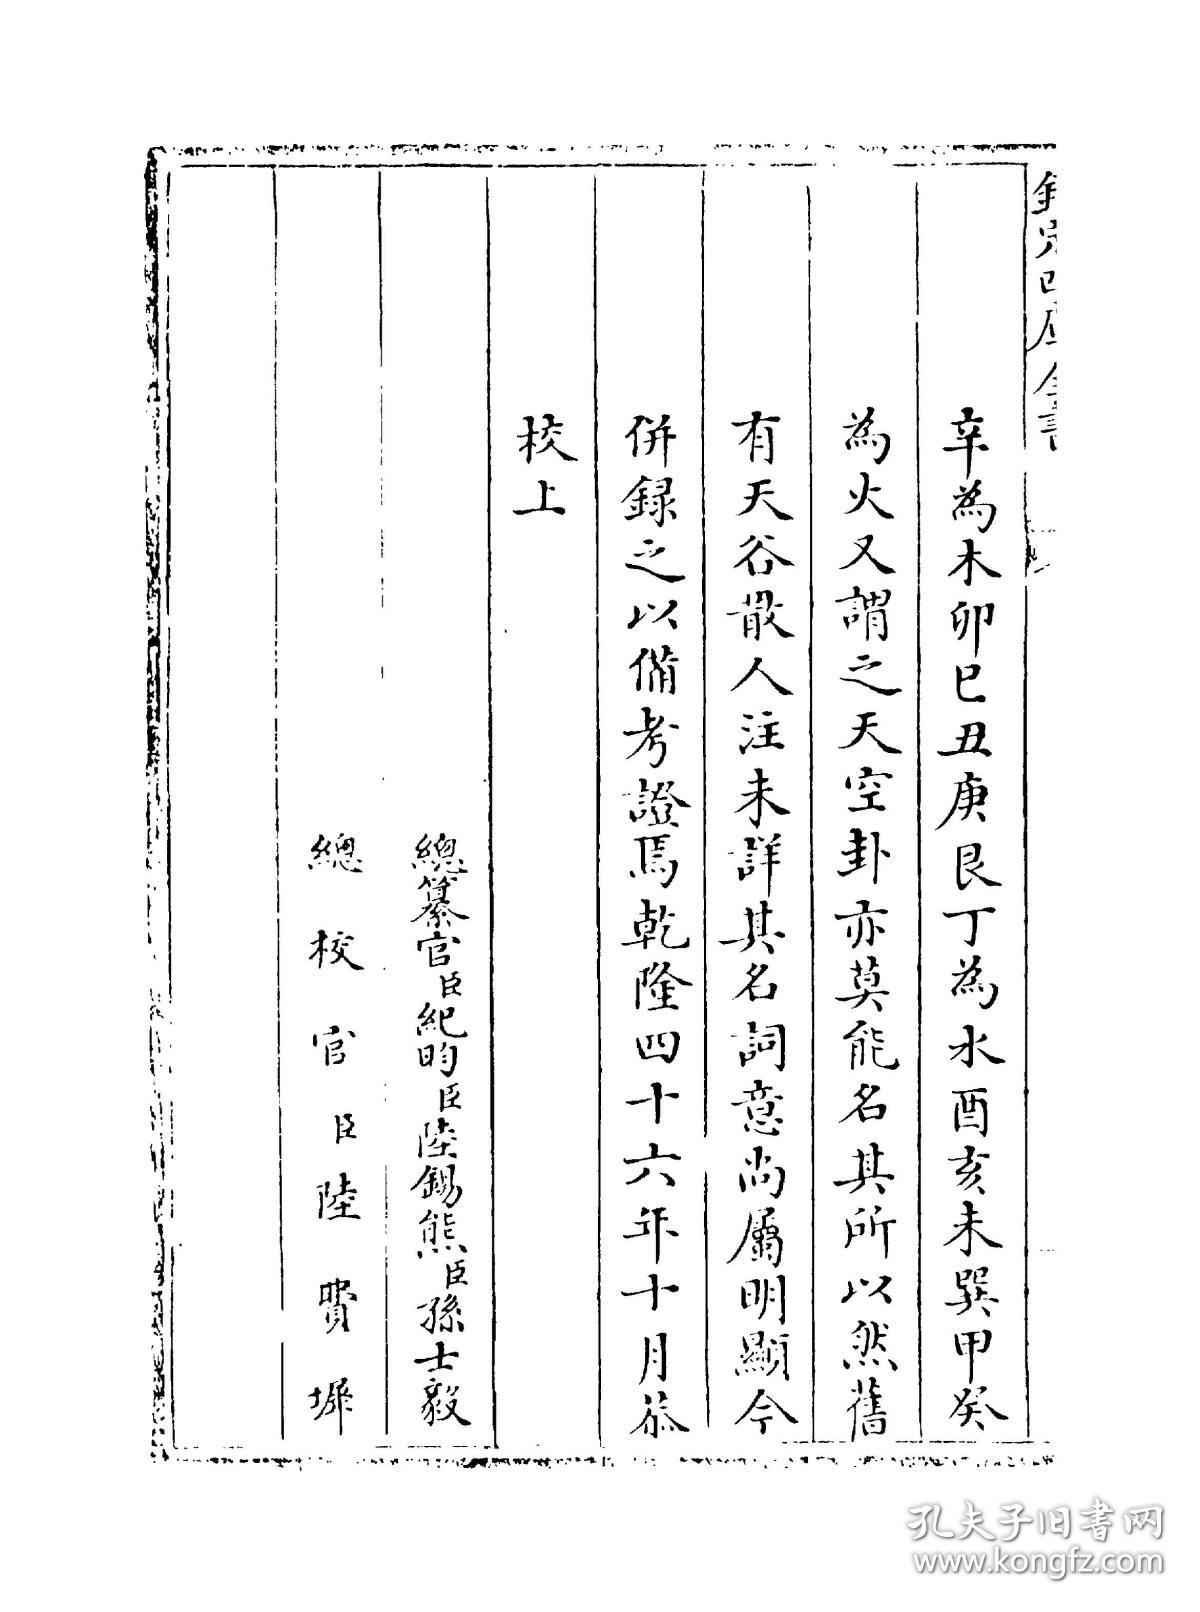 欽定四庫全書
辛為木卯巳丑庚艮丁為水酉亥未巽甲癸
為火又謂之天空卦亦莫能名其所以然舊
有天谷散人注未詳其名詞意尚屬明顯今
併録之以備考證焉乾隆四十六年十月恭
校上
總纂官臣紀昀臣陸錫熊臣孫士毅
總校官臣陸費墀
孔夫子旧書网
www.kongfz.com